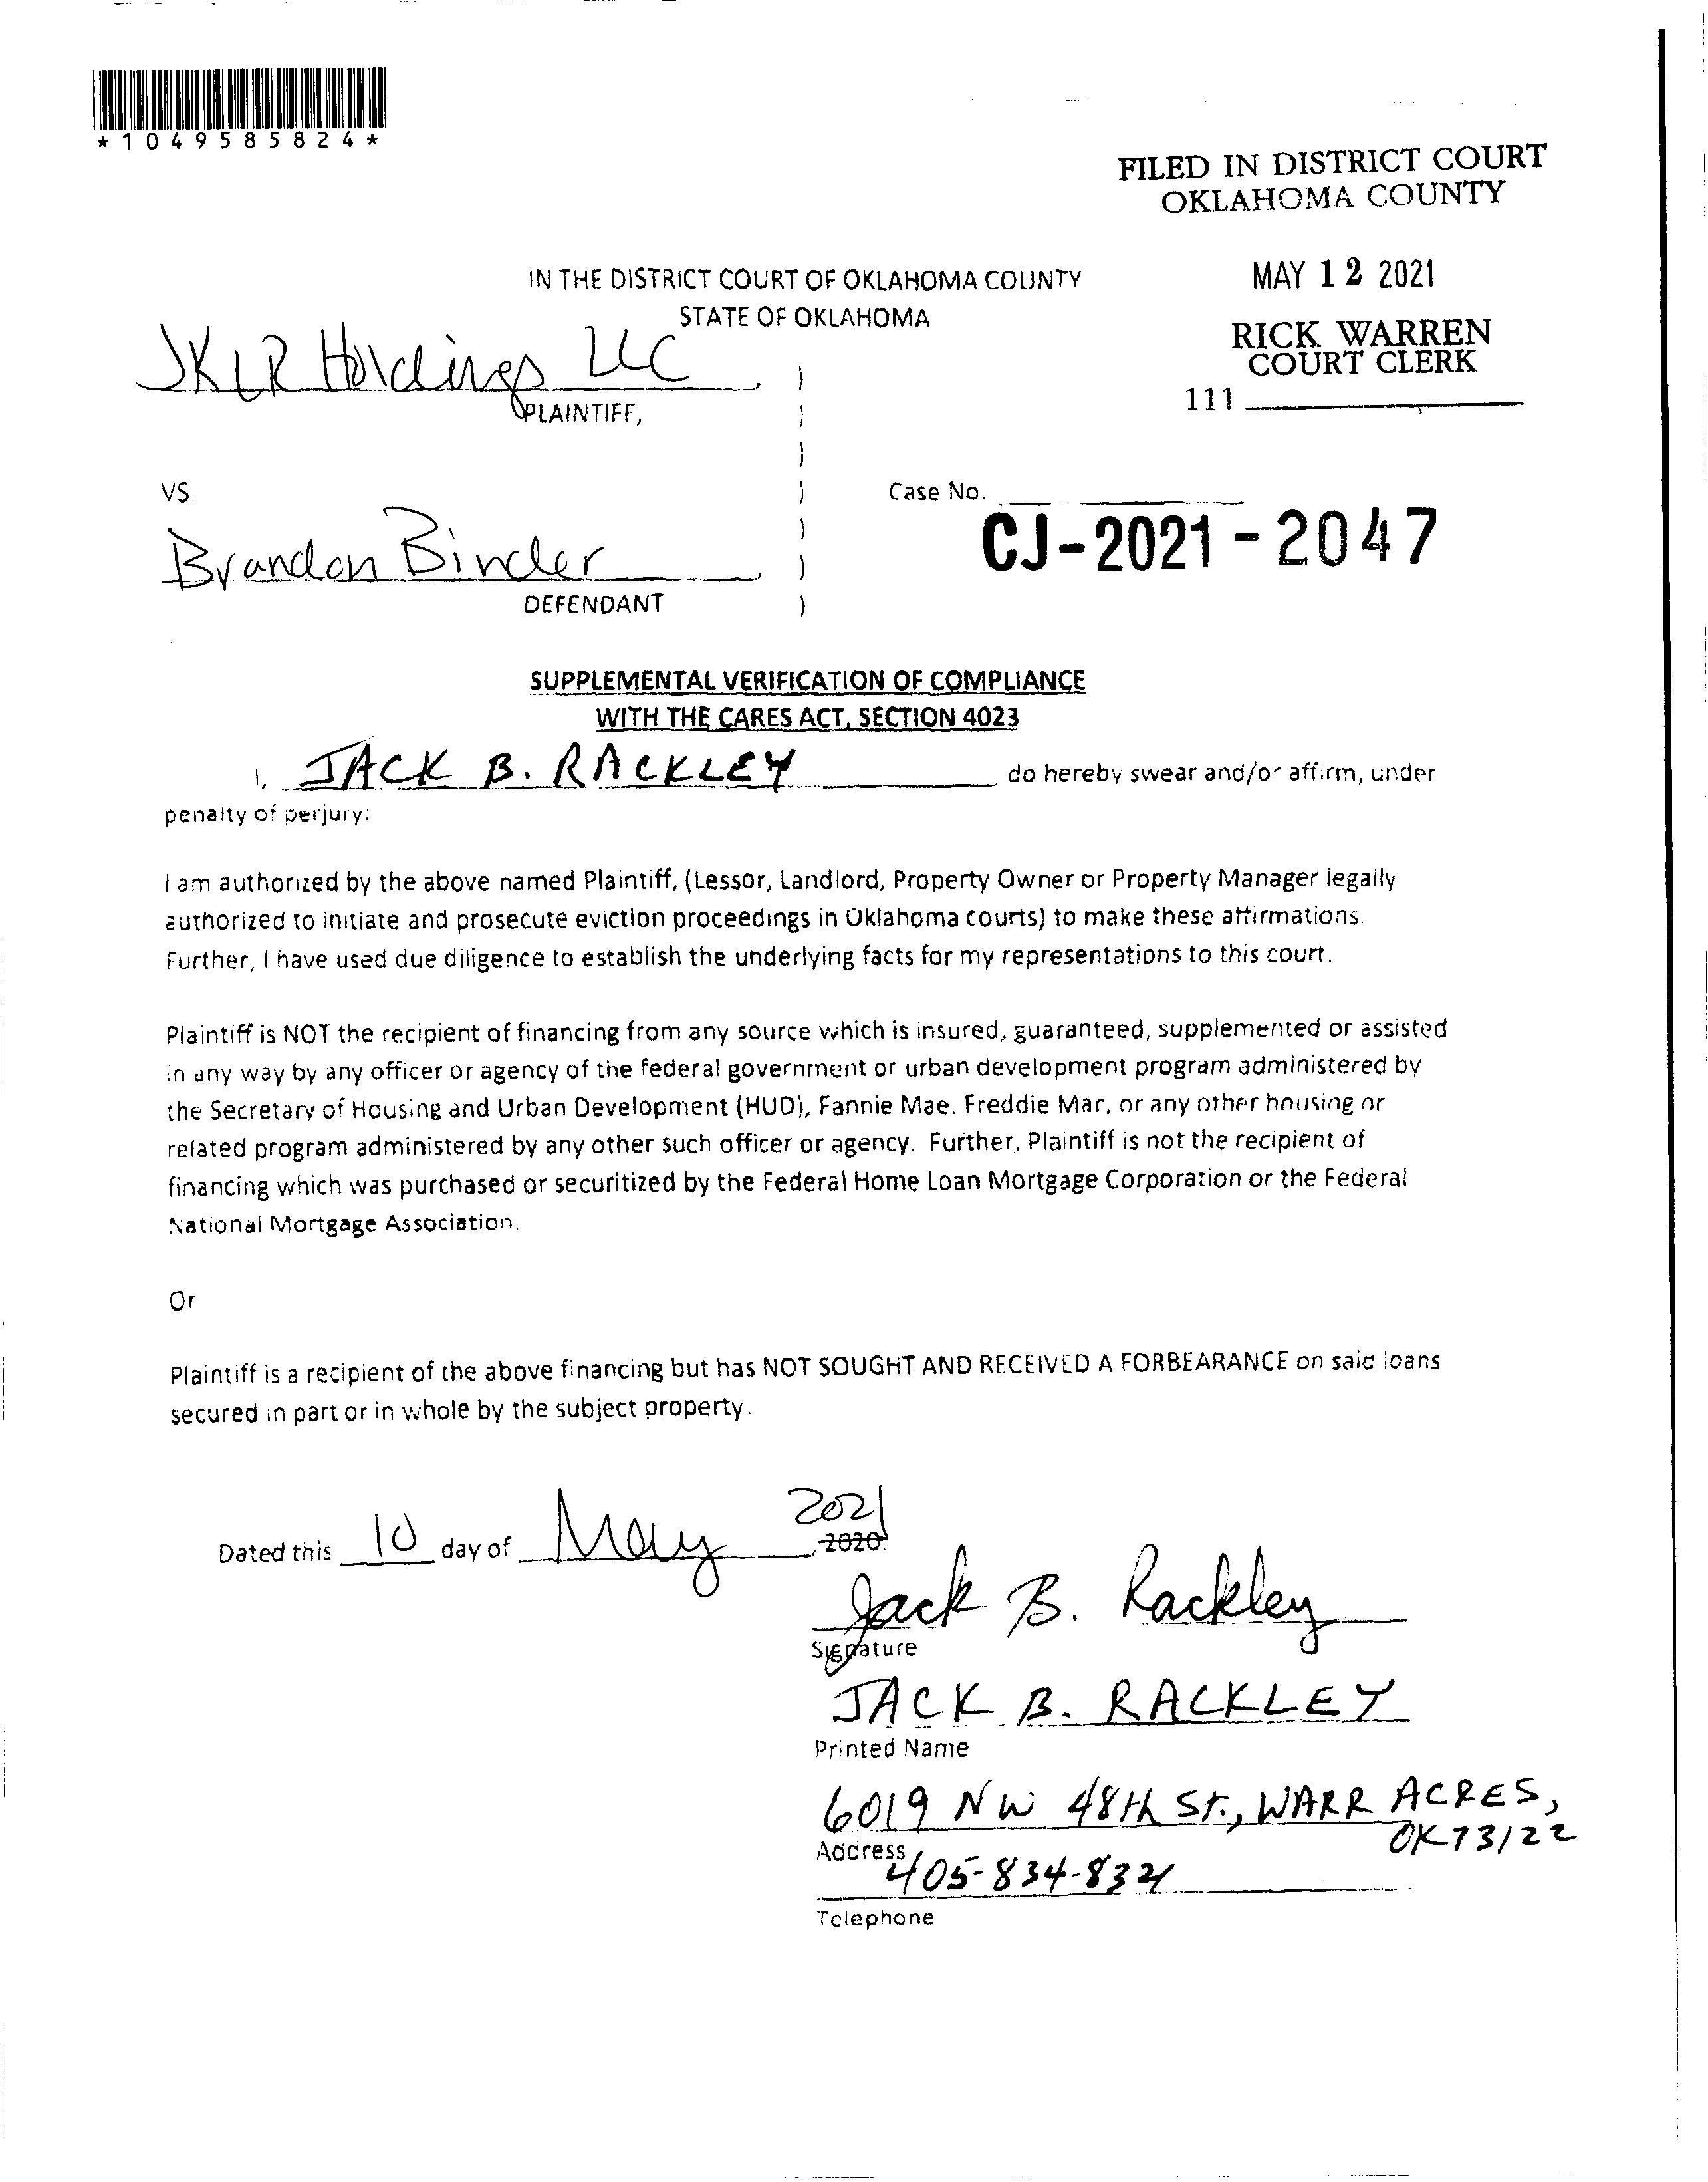 *1049585824*
FILED IN DISTRICT COURT
OKLAHOMA COUNTY
MAY 12 2021
RICK WARREN
COURT CLERK
111
IN THE DISTRICT COURT OF OKLAHOMA COUNTY
STATE OF OKLAHOMA
JKLR Holdings LLC,
PLAINTIFF,
VS.
Case No.
CJ-2021-2047
Brandon Binder,
DEFENDANT
SUPPLEMENTAL VERIFICATION OF COMPLIANCE
WITH THE CARES ACT, SECTION 4023
I, JACK B. RACKLEY do hereby swear and/or affirm, under
penalty of perjury:
I am authorized by the above named Plaintiff, (Lessor, Landlord, Property Owner or Property Manager legally
authorized to initiate and prosecute eviction proceedings in Oklahoma courts) to make these affirmations.
Further, I have used due diligence to establish the underlying facts for my representations to this court.
Plaintiff is NOT the recipient of financing from any source which is insured, guaranteed, supplemented or assisted
in any way by any officer or agency of the federal government or urban development program administered by
the Secretary of Housing and Urban Development (HUD), Fannie Mae, Freddie Mac, or any other housing or
related program administered by any other such officer or agency. Further, Plaintiff is not the recipient of
financing which was purchased or securitized by the Federal Home Loan Mortgage Corporation or the Federal
National Mortgage Association.
Or
Plaintiff is a recipient of the above financing but has NOT SOUGHT AND RECEIVED A FORBEARANCE on said loans
secured in part or in whole by the subject property.
2021
Dated this 10 day of May, 2020.
Jack B. Rackley
Signature
JACK B. RACKLEY
Printed Name
6019 NW 48th St., WARR ACRES,
OK 73122
Address
405-834-832
Telephone